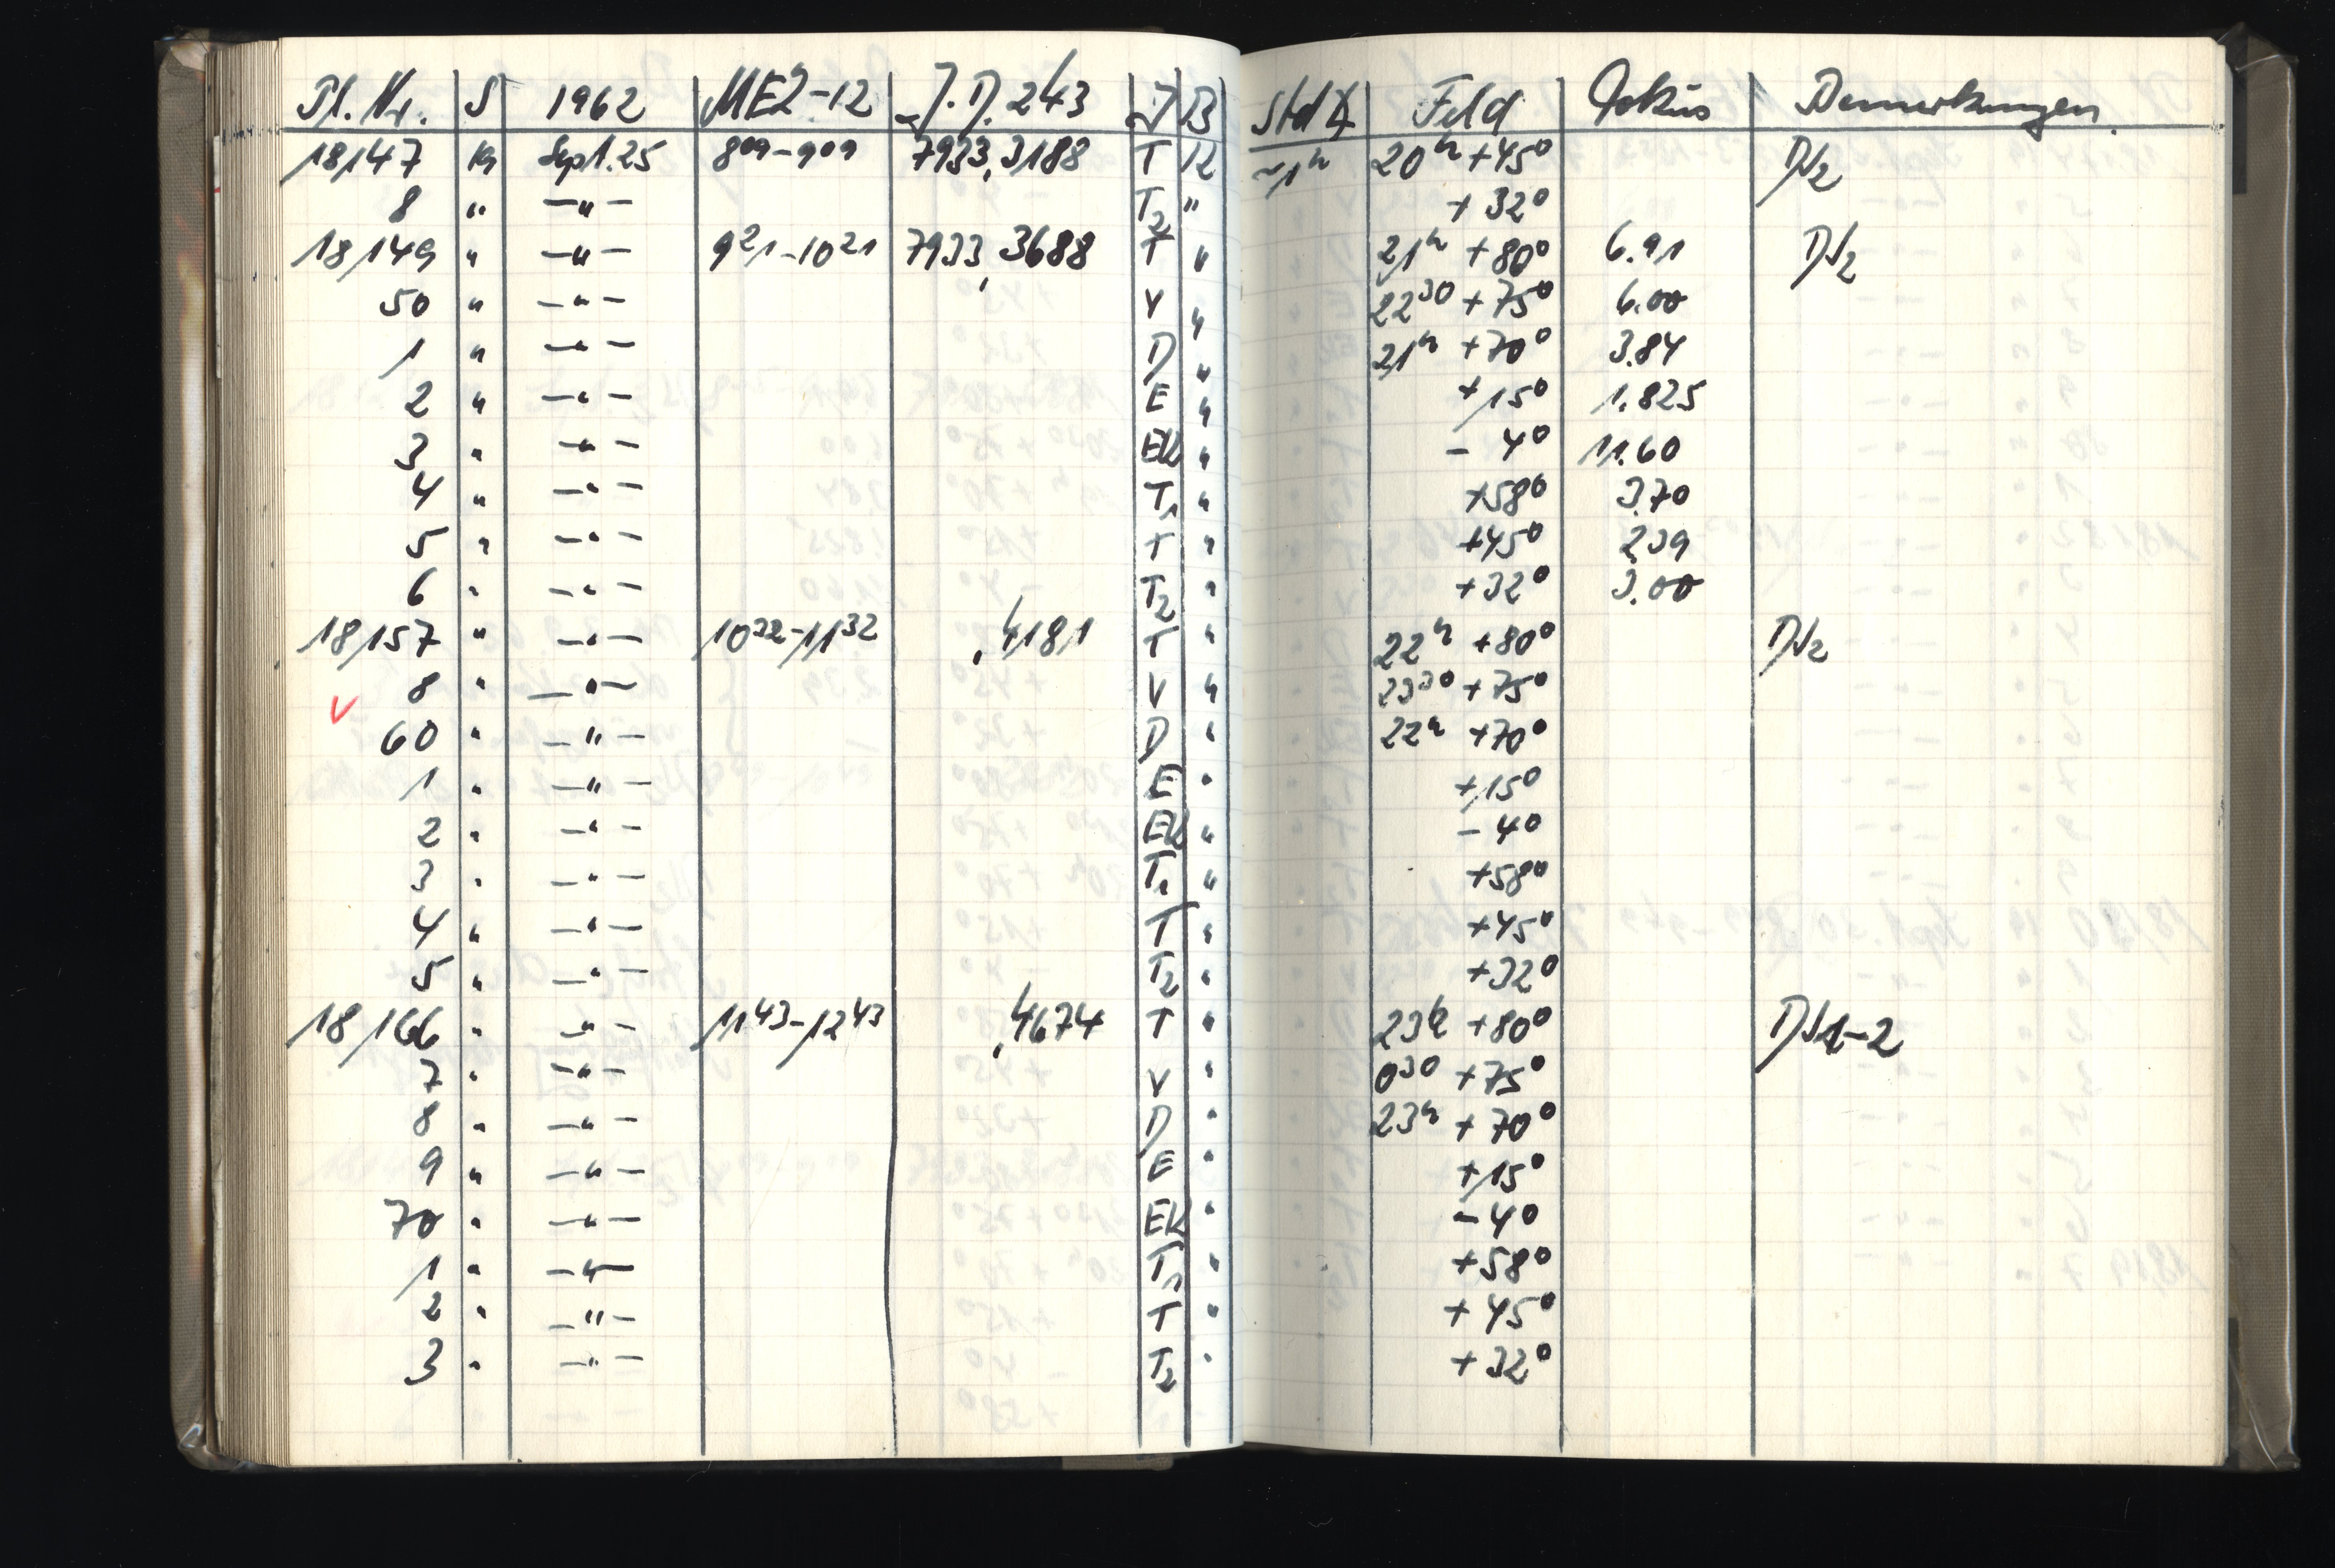 Pl. Nr. S 1962 MEZ-12 J.D. 243 J B Std ∢ Feld Fokus Bemerkungen
18147 Kg Sept. 25 8 09 - 9 09 7933,3188 T 12 ~1h 20h +45° DN2
8 " -"- T2 " +32°
18149 " -"- 9 21 - 10 21 7933,3688 T " 21h +80° 6.91 DN2
50 " -"- V " 22 30 +75° 6.00
1 " -"- D " 21h +70° 3.84
2 " -"- E " +15° 1.825
3 " -"- EK " -4° 11.60
4 " -"- T1 " +58° 3.70
5 " -"- T " +45° 2.39
6 " -"- T2 " +32° 3.00
18157 " -"- 10 32 - 11 32 ,4181 T " 22h +80° DN2
8 " -"- V " 23 30 +75°
60 " -"- D " 22h +70°
1 " -"- E " +15°
2 " -"- EK " -4°
3 " -"- T1 " +58°
4 " -"- T " +45°
5 " -"- T2 " +32°
18166 " -"- 11 43 - 12 43 ,4674 T " 23h +80° DN1-2
7 " -"- V " 0 30 +75°
8 " -"- D " 23h +70°
9 " -"- E " +15°
70 " -"- EK " -4°
1 " -"- T1 " +58°
2 " -"- T " +45°
3 " -"- T2 " +32°